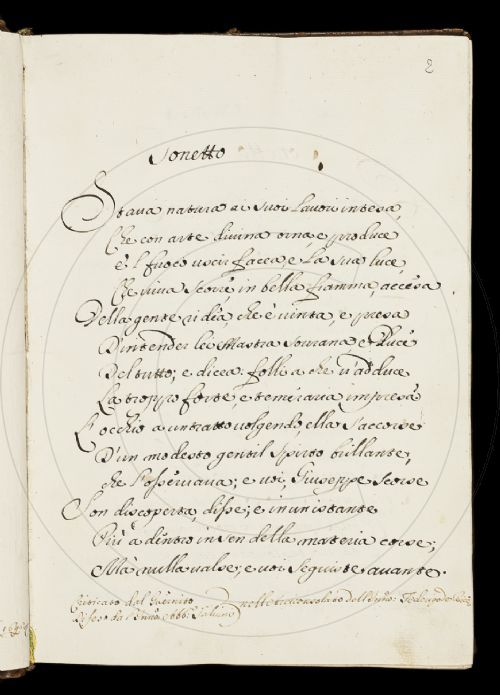 2
Sonetto
Staua natura ai suoi lauori intesa,
Che con arte diuina orna, e produce
E 'l fuoco uscir facea, e la sua luce,
Che uiua scorse, in bella fiamma, accesa
Della gente ridea, che è uinta, e presa
D'intender lei Mastra sourana e Duce
Del tutto; e dicea folli a che u'adduce
La troppo forte, e temeraria impresa
L'occhio a un tratto uolgendo, ella s'accorse
D'un modesto gentil spirto brillante,
che l'osseruaua; e uoi, Giuseppe scorse
Son discoperta, disse; e in un istante
Più a dentro in sen della materia corse;
Mà nulla ualse; e uoi seguiste auante.
Criticato dal nelle consolato dell'
Difeso dal